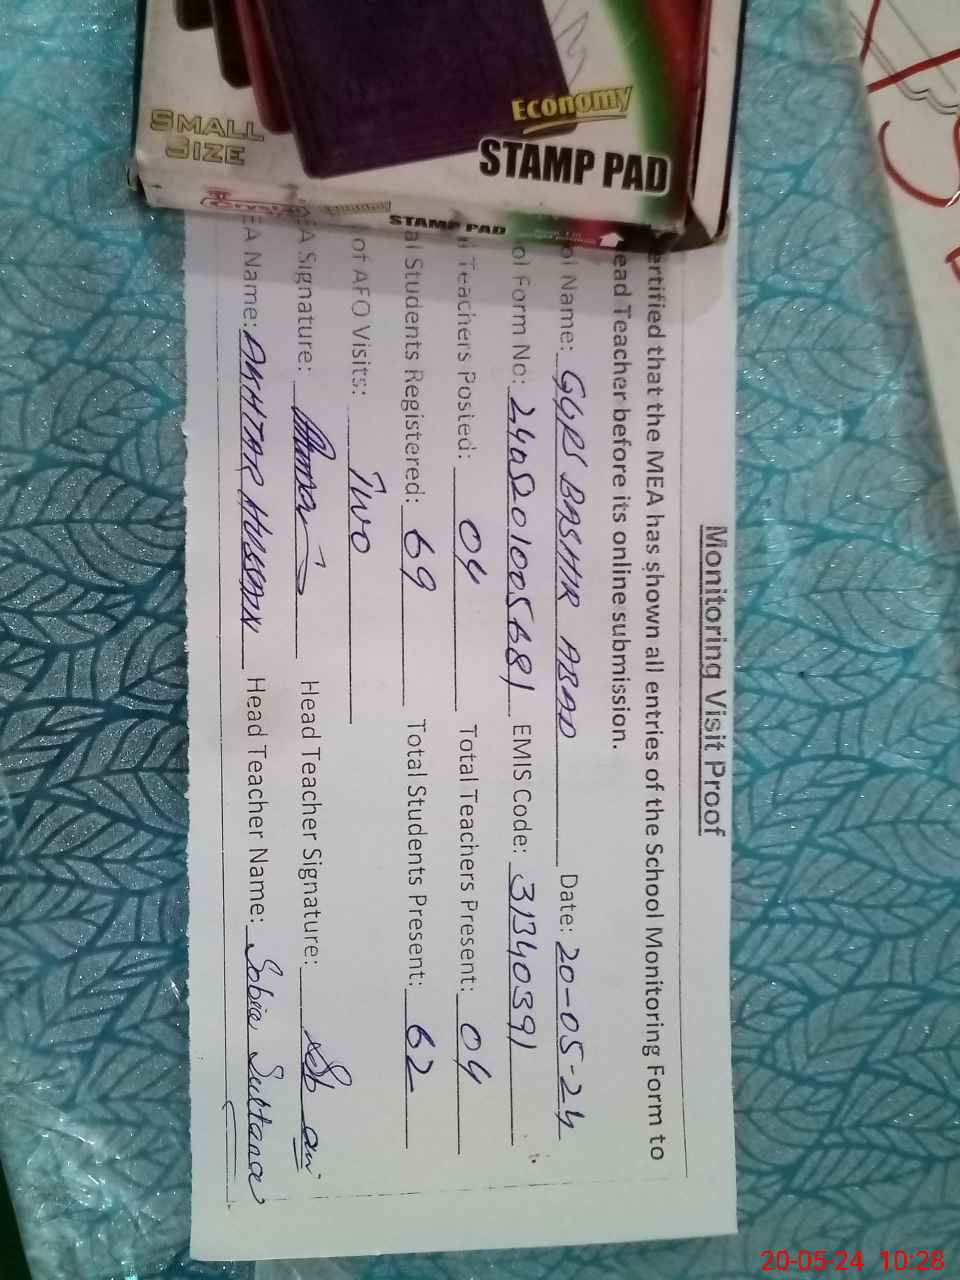 SMALL
SIZE
Economy
STAMP PAD
STAMP PAD
Monitoring Visit Proof
ertified that the MEA has shown all entries of the School Monitoring Form to
ead Teacher before its online submission.
ol Name: GGPS BASHIR ABAD Date: 20-05-24
ol Form No: 2405201005681 EMIS Code: 31340391
l Teachers Posted: 04 Total Teachers Present: 04
al Students Registered: 69 Total Students Present: 62
of AFO Visits: Two
EA Signature: Head Teacher Signature:
EA Name: AKHTAR HUSSAIN Head Teacher Name: Sobia Sultana
20-05-24 10:28